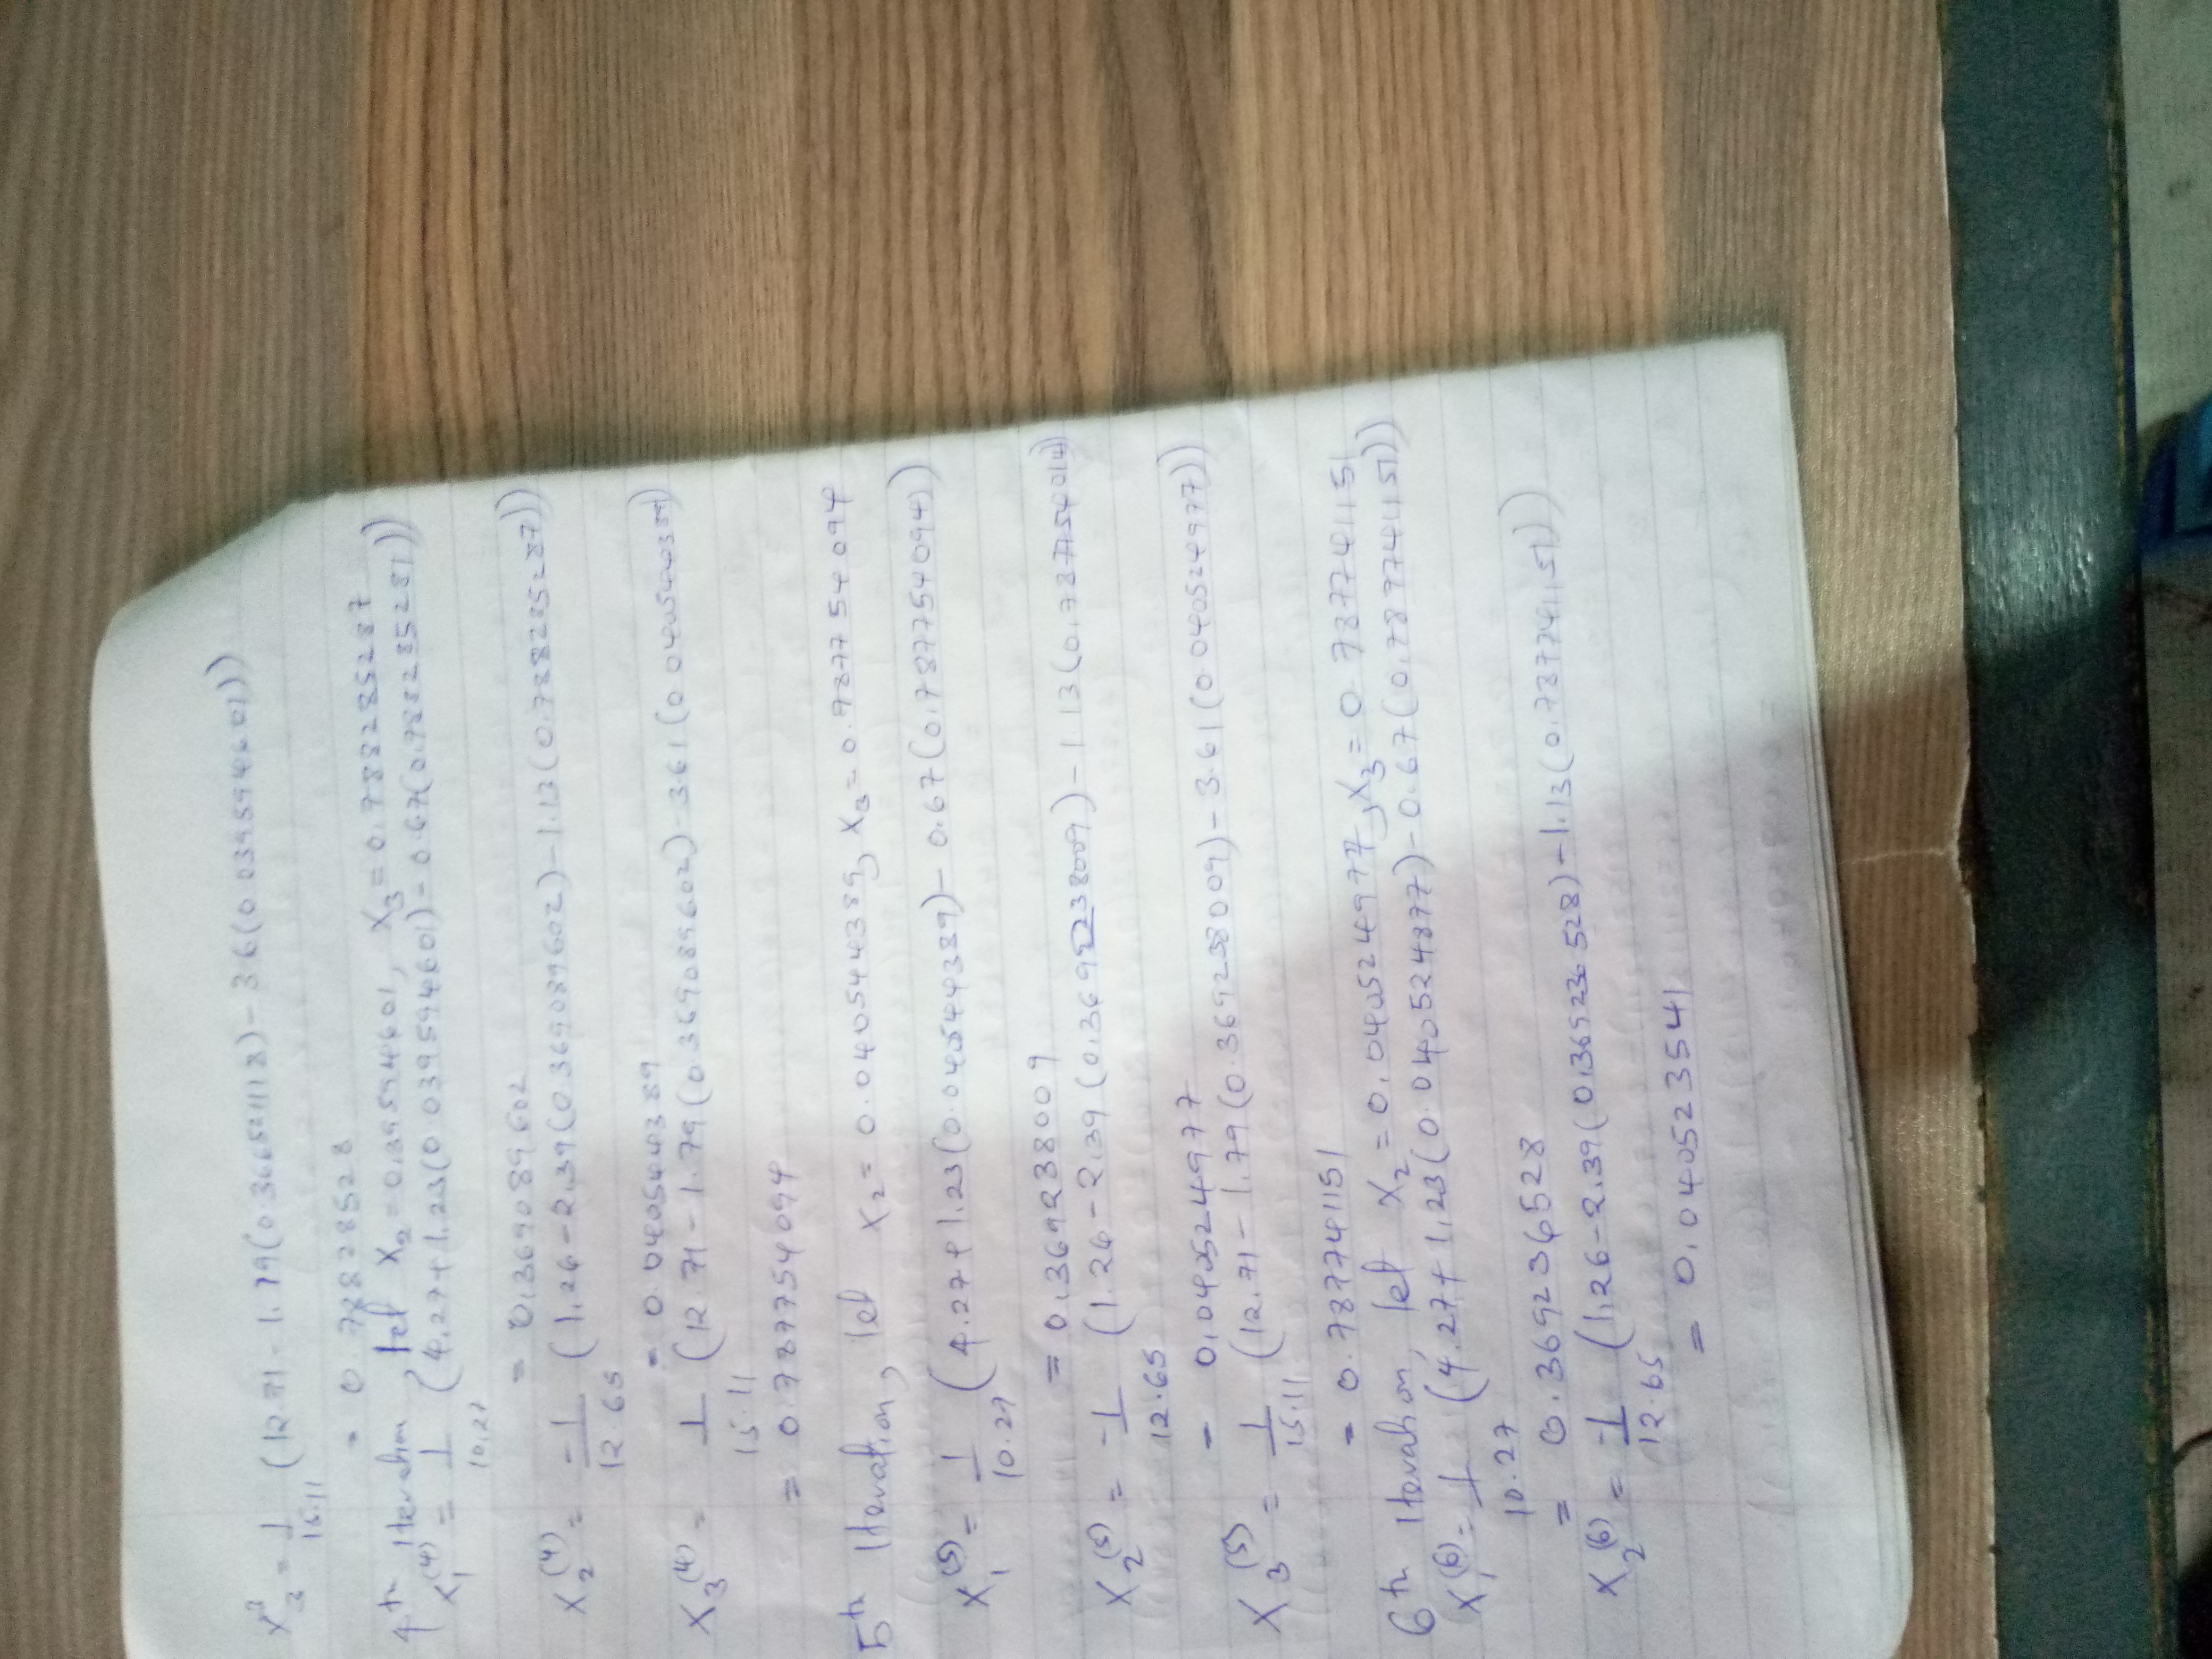 x₃³ = 1/15.11 (12.71 - 1.79(0.366521118) - 3.6(0.039594601))
= 0.78828528
4th iteration, let x₂ = 0.039594601, x₃ = 0.788285287
x₁⁽⁴⁾ = 1/10.27 (4.27 + 1.23(0.039594601) - 0.67(0.788285281))
= 0.369089602
x₂⁽⁴⁾ = -1/12.65 (1.26 - 2.39(0.369089602) - 1.13(0.788285287))
= 0.040544389
x₃⁽⁴⁾ = 1/15.11 (12.71 - 1.79(0.369089602) - 3.61(0.040544389)
= 0.787754094
5th Iteration, let x₂ = 0.040544389, x₃ = 0.787754094
x₁⁽⁵⁾ = 1/10.27 (4.27 + 1.23(0.040544389) - 0.67(0.787754094))
= 0.369238009
x₂⁽⁵⁾ = -1/12.65 (1.26 - 2.39(0.369238009) - 1.13(0.787754014))
= 0.040524977
x₃⁽⁵⁾ = 1/15.11 (12.71 - 1.79(0.369238009) - 3.61(0.040524977))
= 0.787741151
6th Iteration, let x₂ = 0.040524977, x₃ = 0.787741151
x₁⁽⁶⁾ = 1/10.27 (4.27 + 1.23(0.040524877) - 0.67(0.787741151))
= 0.369236528
x₂⁽⁶⁾ = -1/12.65 (1.26 - 2.39(0.369236528) - 1.13(0.787741151))
= 0.040523541